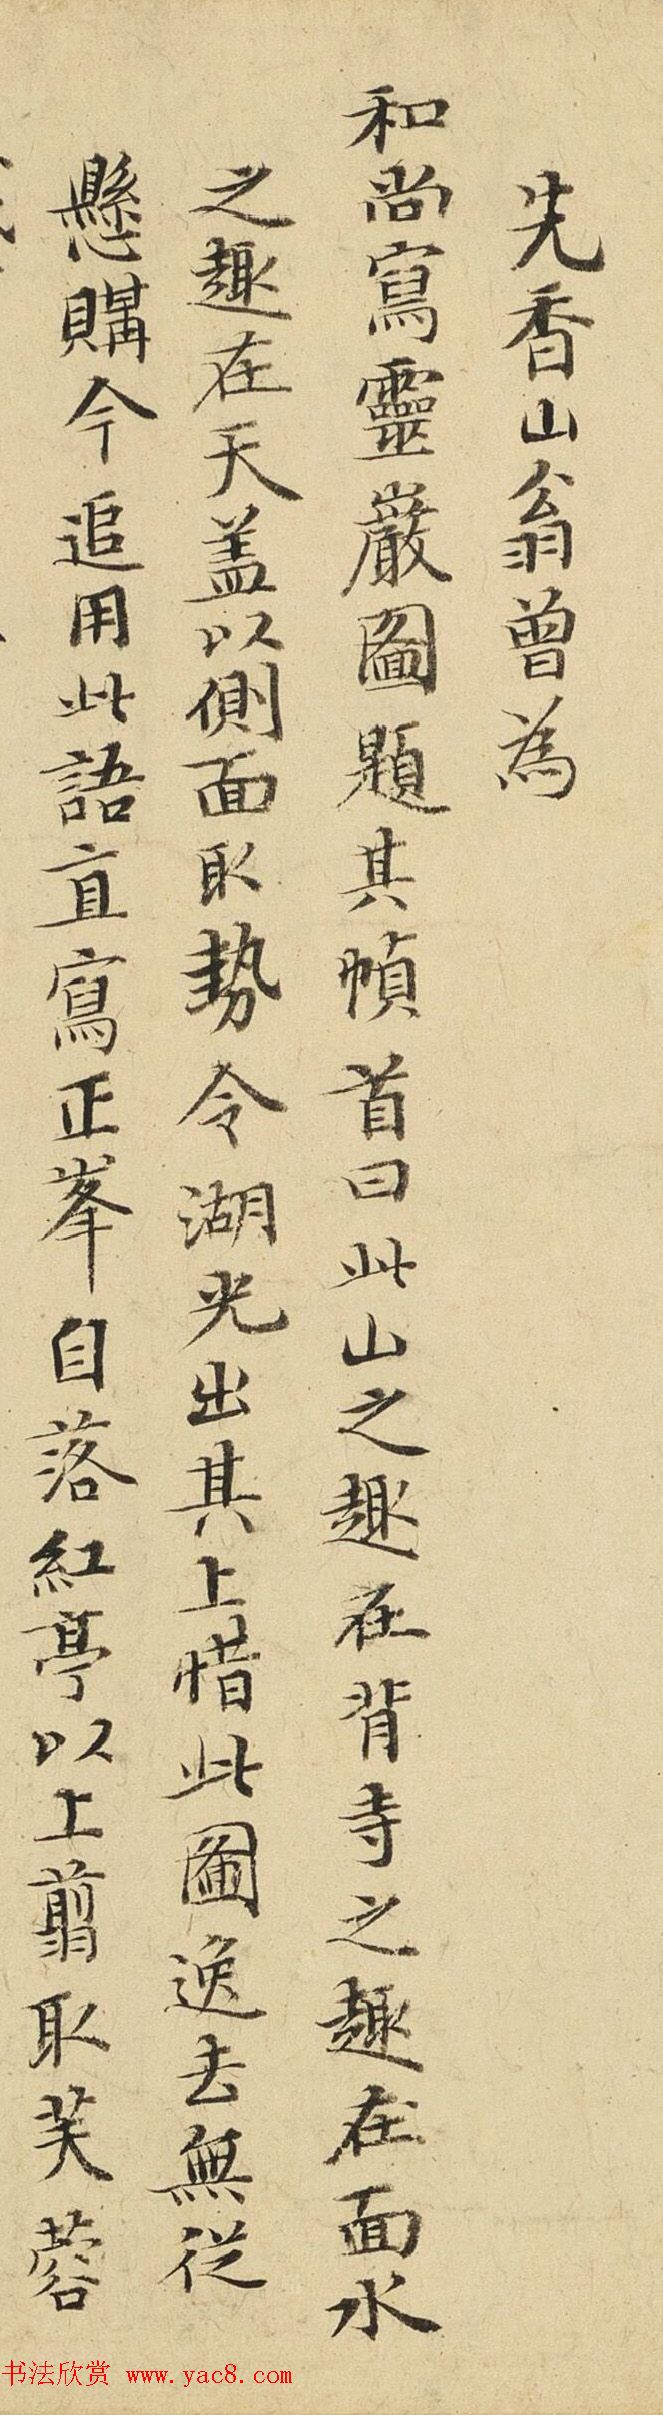 先香山翁曾為
和尚寫靈巖圖題其幀首曰此山之趣在背寺之趣在面水
之趣在天蓋以側面取勢令湖光出其上惜此圖逸去無從
懸購今追用此語直寫正峯自落紅亭以上翦取芙蓉
书法欣赏 www.yac8.com